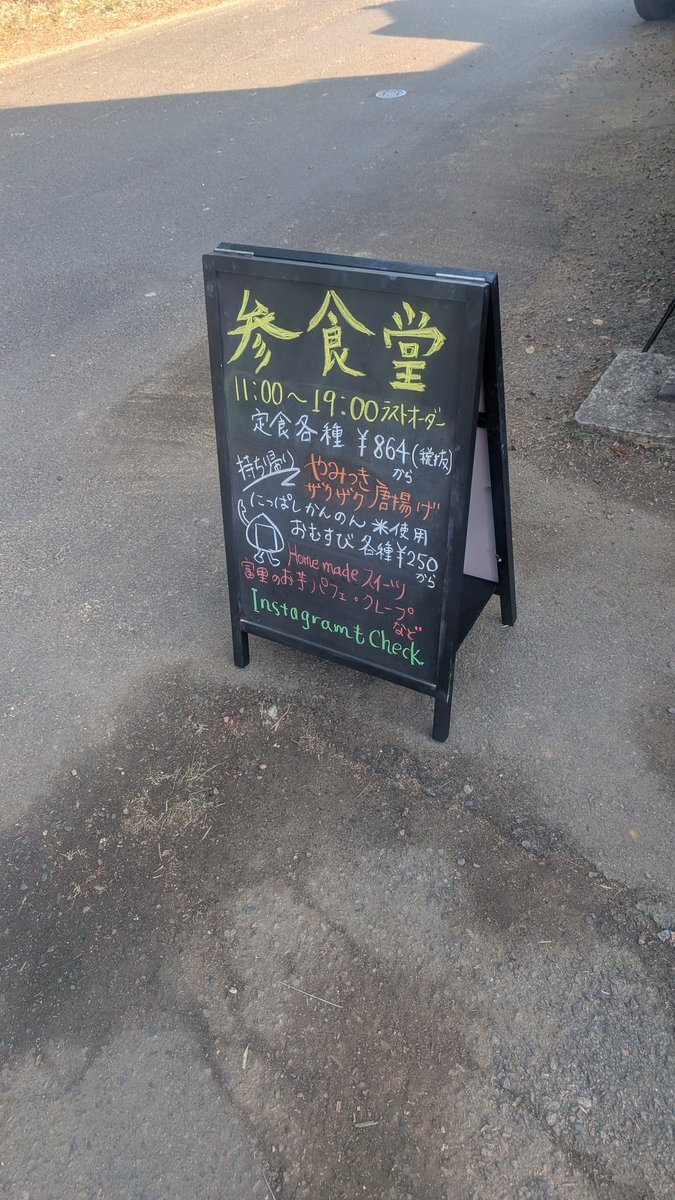 参食堂
11:00〜19:00 ラストオーダー
定食各種 ¥864(税抜)から
持ち帰り やみつき
ザクザク唐揚げ
にっぱしかんのん米使用
おむすび各種¥250から
Home made スイーツ
富里のお芋パフェ・クレープなど
InstagramもCheck